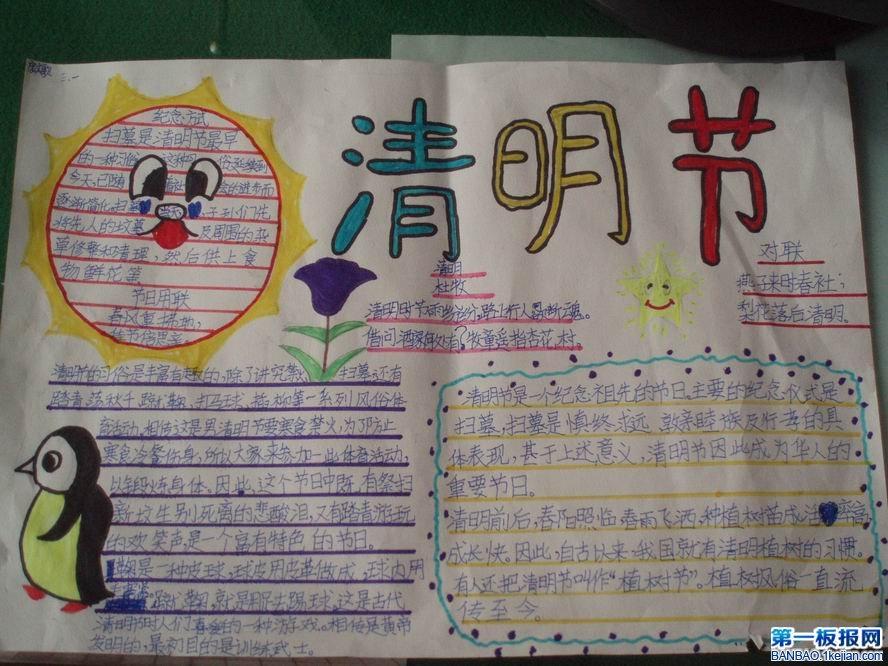 三.一
清明节
纪念方式
扫墓是清明节最早
的一种习俗,这种习俗延续到
今天,已随着社会的进步而
逐渐简化。扫墓当天,子孙们先
将先人的坟墓及周围的杂
草修整和清理,然后供上食
物鲜花等
节日用联
春风重拂地,
佳节倍思亲
清明
杜牧
清明时节雨纷纷,路上行人欲断魂。
借问酒家何处有?牧童遥指杏花村。
对联
燕子来时春社;
梨花落后清明。
清明节的习俗是丰富有趣的,除了讲究禁火、扫墓,还有
踏青、荡秋千、蹴鞠、打马球、插柳等一系列风俗体
育活动。相传这是因清明节要寒食禁火,为了防止
寒食冷餐伤身,所以大家来参加一些体育活动,
以锻炼身体。因此,这个节日中既有祭扫
新坟生别死离的悲酸泪,又有踏青游玩
的欢笑声,是一个富有特色的节日。
鞠是一种皮球,球皮用皮革做成,球内用
蹴鞠,就是用足去踢球。这是古代
清明节时人们喜爱的一种游戏。相传是黄帝
发明的,最初目的是训练武士。
清明节是一个纪念祖先的节日。主要的纪念仪式是
扫墓,扫墓是慎终求远、敦亲睦族及行孝的具
体表现,基于上述意义,清明节因此成为华人的
重要节日。
清明前后,春阳照临,春雨飞洒,种植树苗成活率高
成长快。因此,自古以来,我国就有清明植树的习惯。
有人还把清明节叫作"植树节"。植树风俗一直流
传至今。
第一板报网
BANBAO.1kejian.com